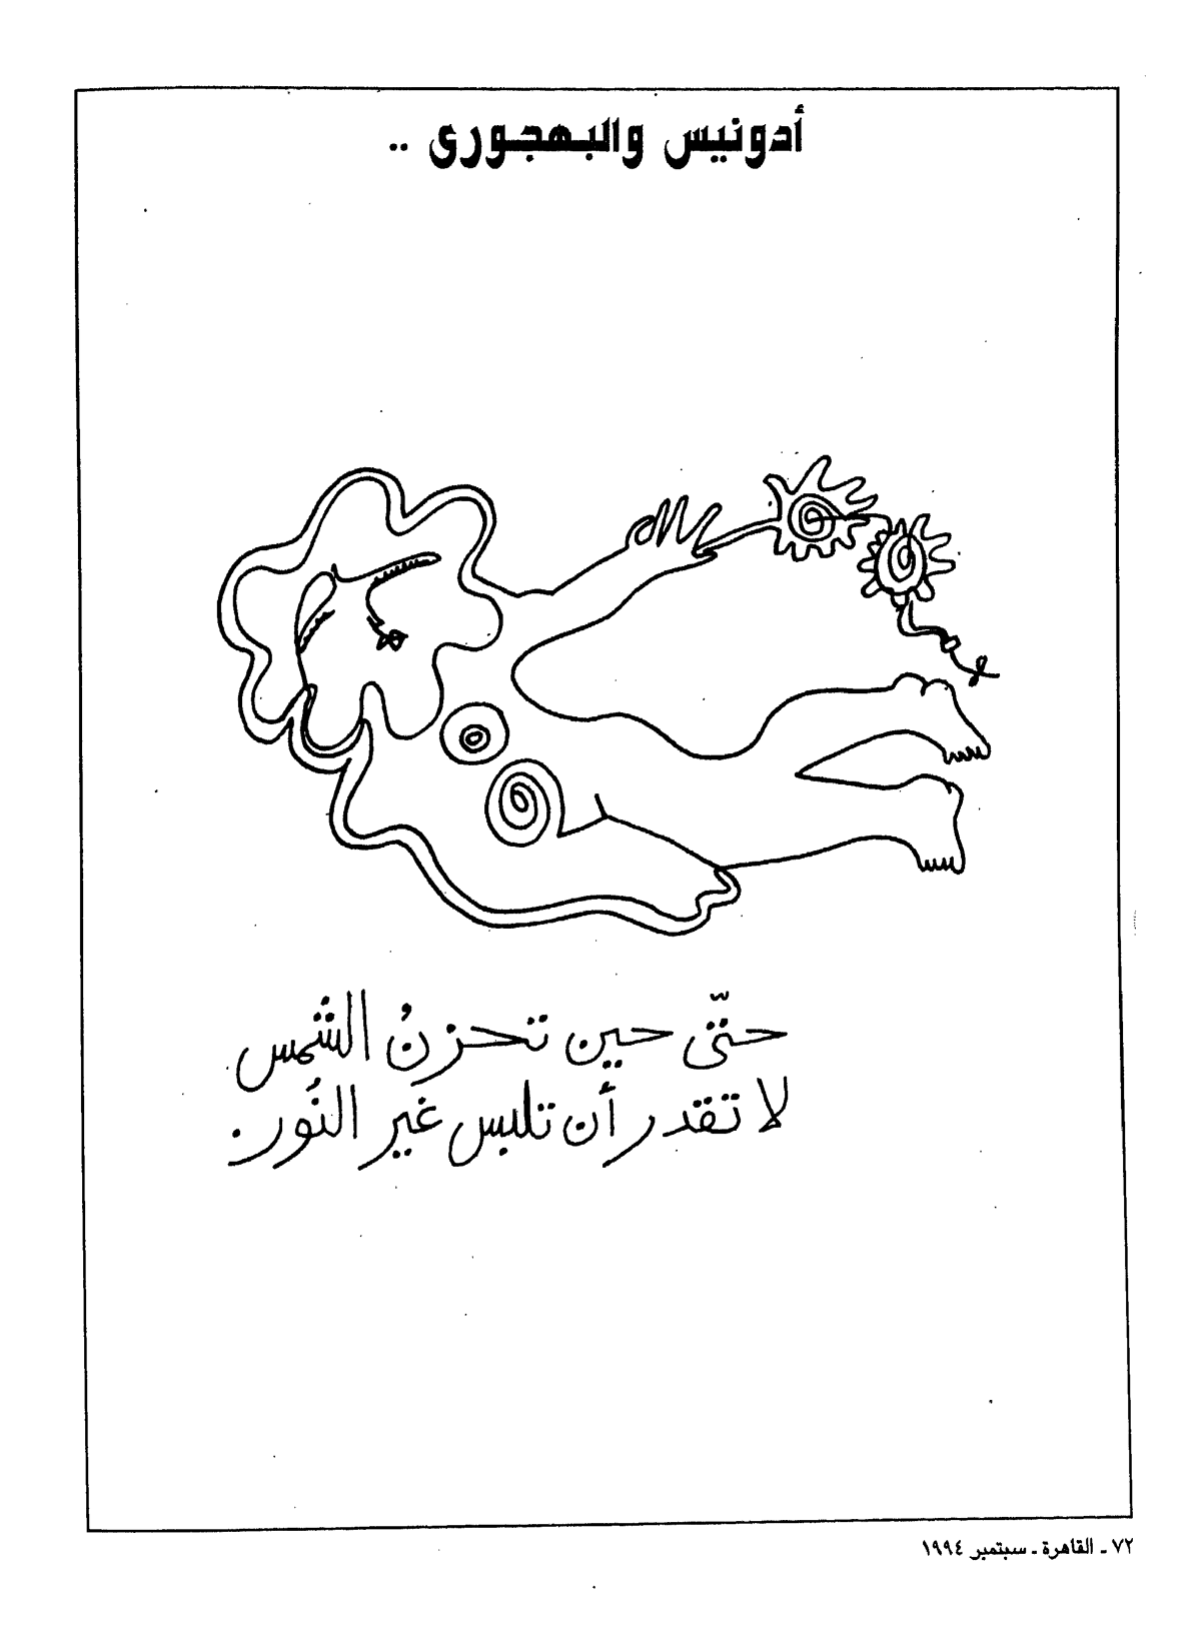 أدونيس والبهجورى ..
حتّى حين تحزنُ الشمس
لا تقدر أن تلبس غير النُور .
٧٢ - القاهرة - سبتمبر ١٩٩٤